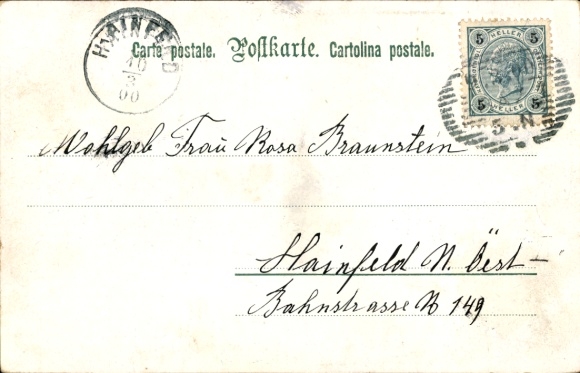 HAINFELD
10
3
00
Carte postale. Postkarte. Cartolina postale.
5 HELLER 5
5 HELLER 5
5 N
Wohlgeb Frau Rosa Braunstein
Hainfeld N. Öest-
Bahnstrasse N 149